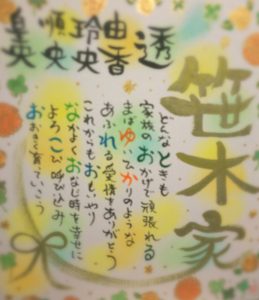 笹木家
透
由香
玲央
順央
皇央
どんなときも
家族のおかげで頑張れる
まばゆいひかりのような
あふれる愛情をありがとう
これからもおもいやり
なかよくおなじ時を幸せに
よろこび呼び込み
おおきく育っていこう